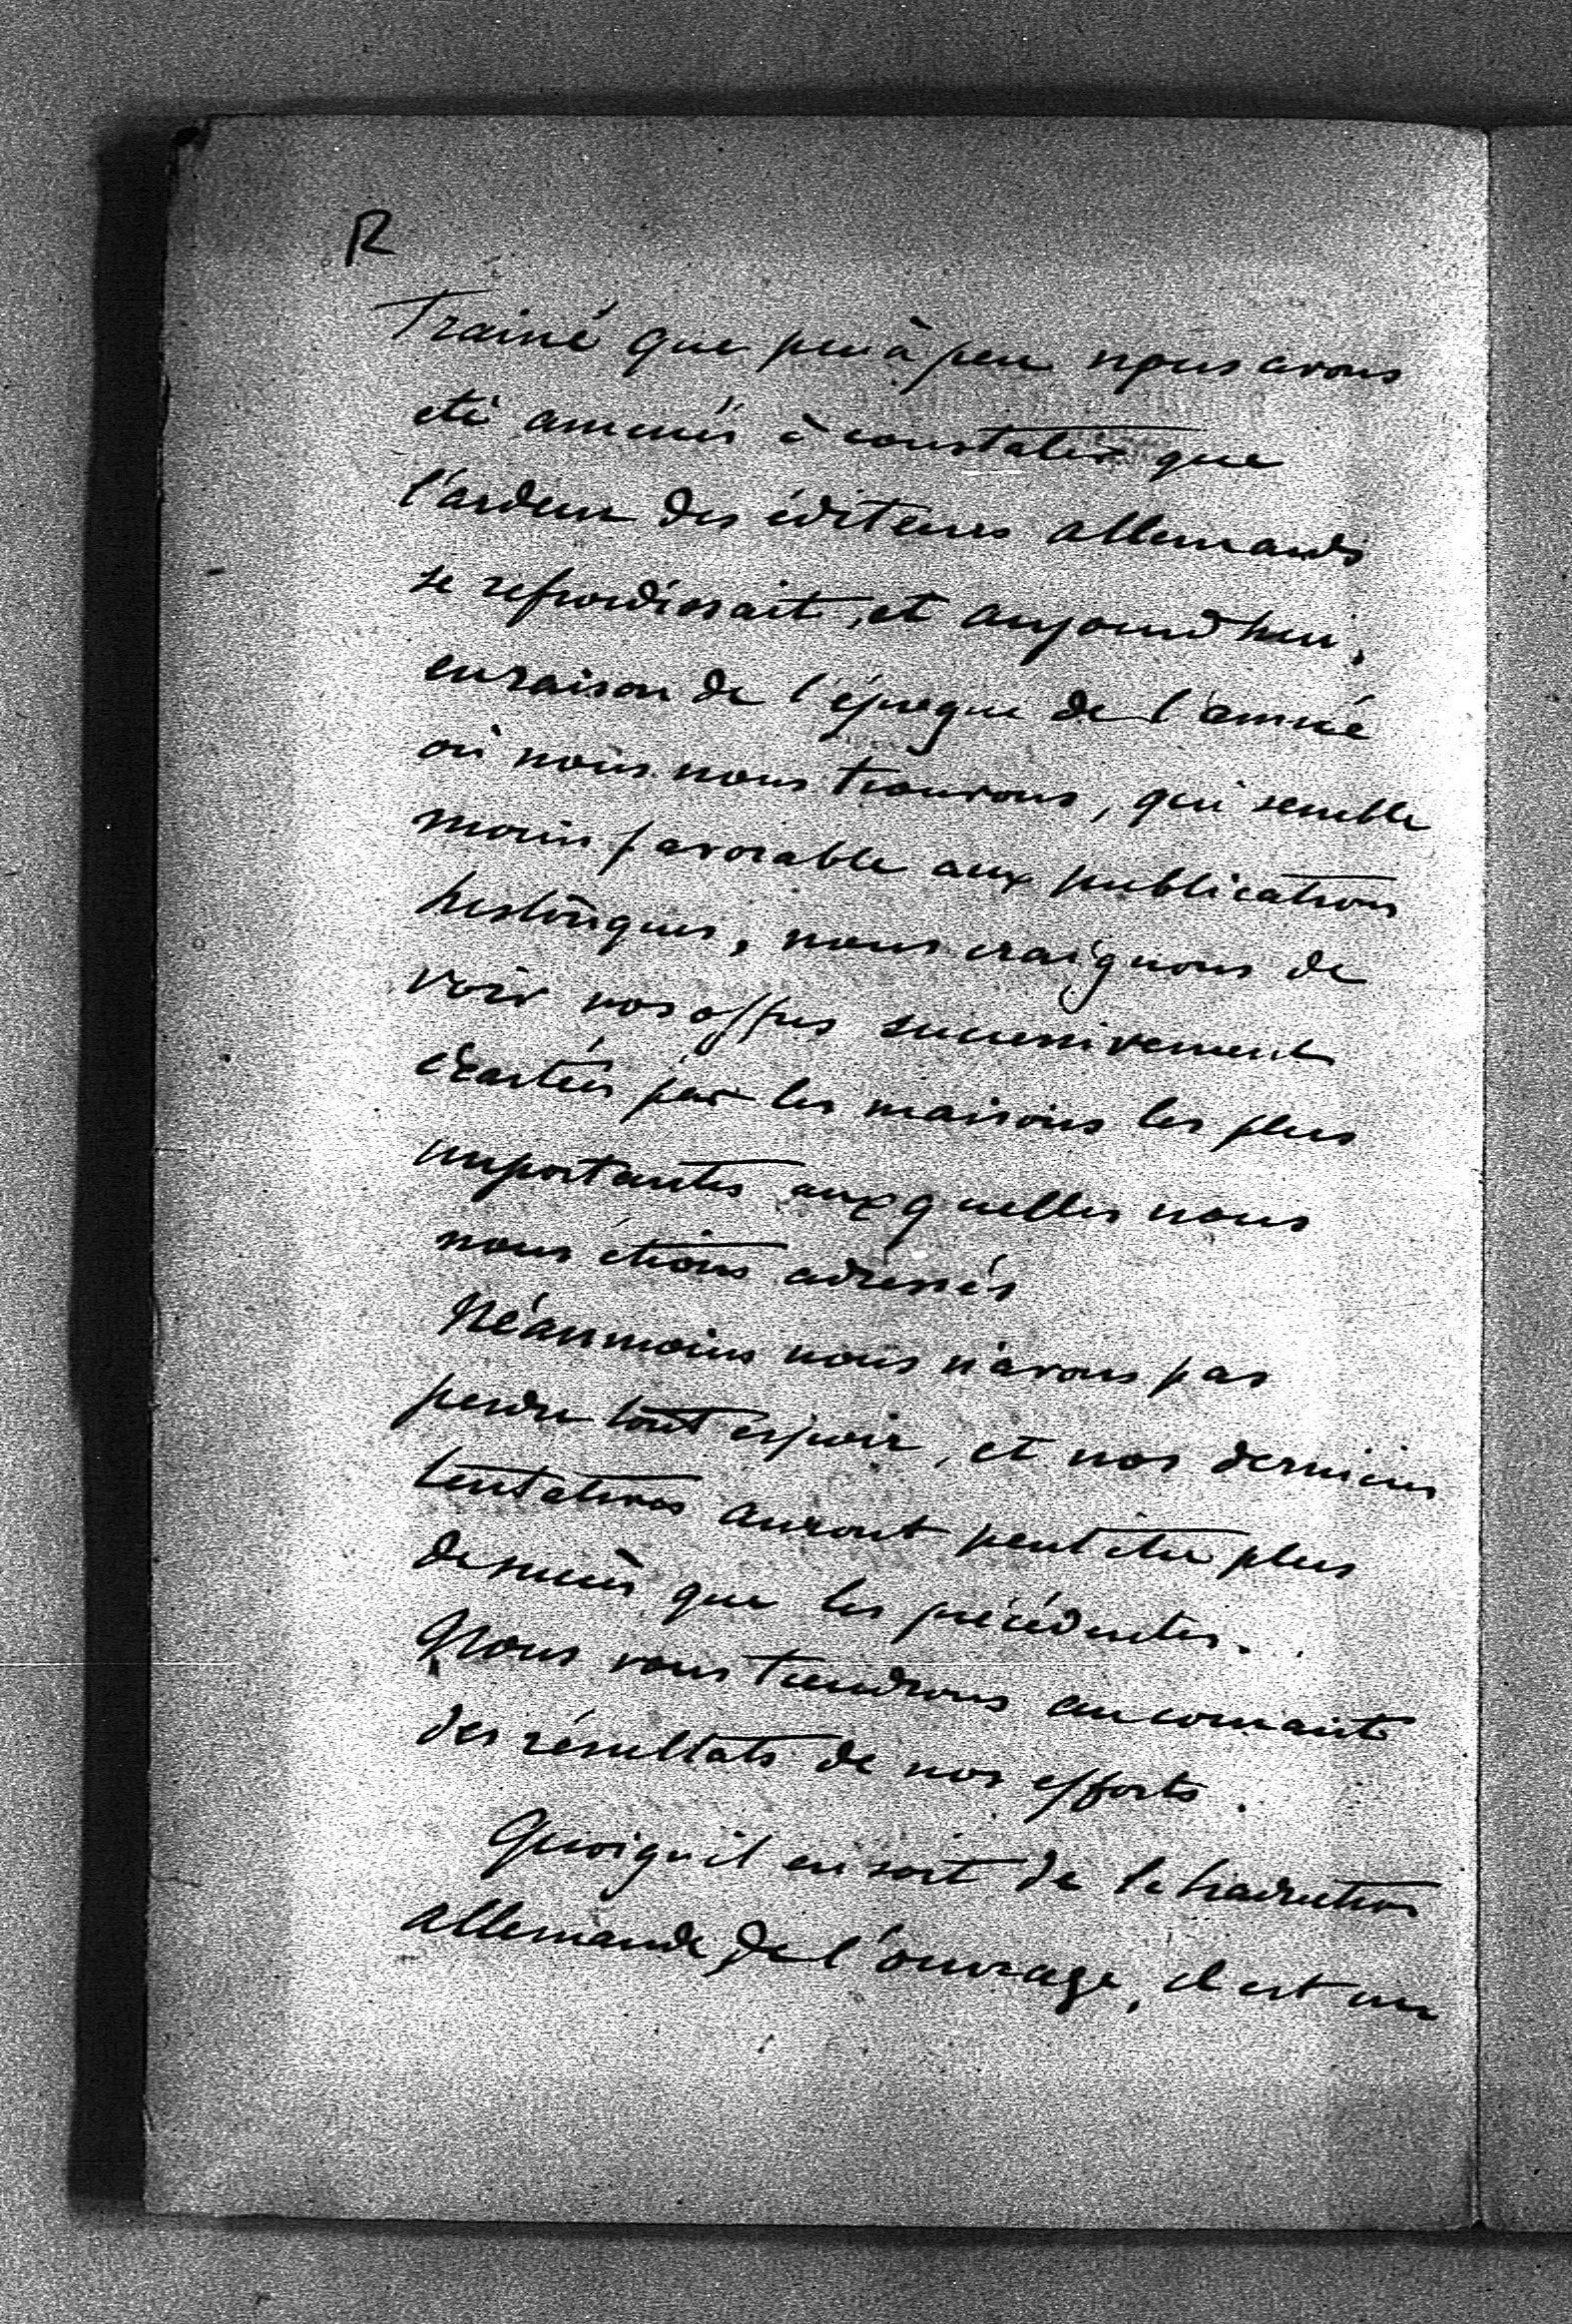 R
Trainé que peu à peu nous avons
été amenés à constater que
l'ardeur des éditeurs allemands
se refroidissait, et aujourd'hui,
en raison de l'époque de l'année
où nous nous trouvons, qui semble
moins favorable aux publications
historiques, nous craignons de
voir nos offres successivement
écartées par les maisons les plus
importantes auxquelles nous
nous étions adressés
Néanmoins nous n'avons pas
perdu tout espoir, et nos dernières
tentatives auront peut être plus
de succès que les précédentes.
Nous vous tiendrons au courant
des résultats de nos efforts.
Quoiqu'il en soit de la traduction
allemande de l'ouvrage, il est un